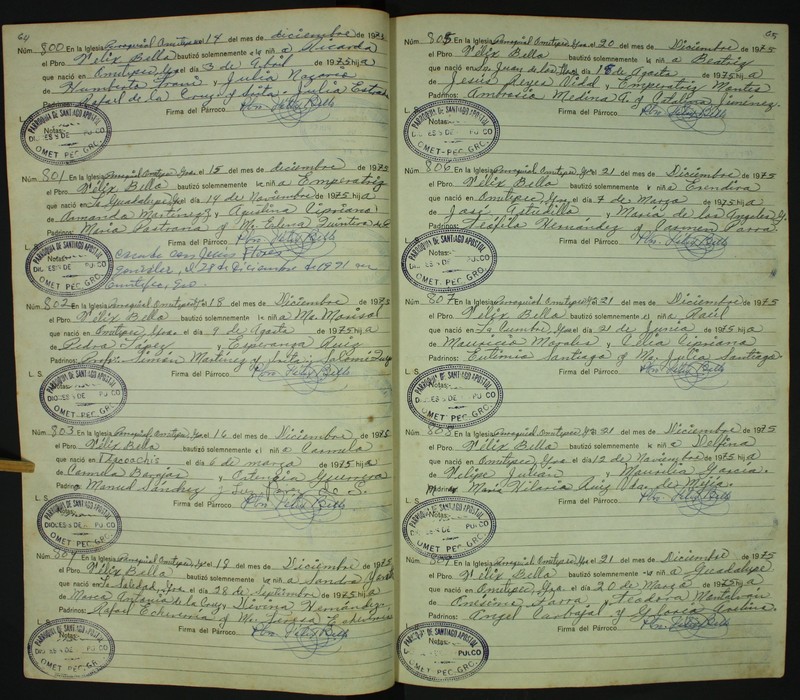 64
Núm. 800 En la Iglesia Parroquial Ometepec el 14 del mes de diciembre de 1975
el Pbro. Félix Bello bautizó solemnemente a la niña Ricarda
que nació en Ometepec Gro. el día 3 de Abril de 1975 hija
de Humberto y Julia Nazario
Padrinos: Rafael de la Cruz y Srita. Julia Estrada
L. S. Firma del Párroco Pbro. Félix Bello
PARROQUIA DE SANTIAGO APOSTOL
Notas:
OMETEPEC, GRO.
Núm. 801 En la Iglesia Parroquial Ometepec Gro. el 15 del mes de diciembre de 1975
el Pbro. Félix Bello bautizó solemnemente a la niña Emperatriz
que nació en La Guadalupe Gro. el día 14 de Noviembre de 1975 hija
de Armando Martínez y Agustina Cipriano
Padrinos: María Pastrana y Ma. Elena Quintero de
L. S. Firma del Párroco Pbro. Félix Bello
PARROQUIA DE SANTIAGO APOSTOL
Notas: casada con Jesús Flores
González, el 28 de Diciembre de 1991 en
Ometepec, Gro.
OMETEPEC, GRO.
Núm. 802 En la Iglesia Parroquial Ometepec el 18 del mes de Diciembre de 1975
el Pbro. Félix Bello bautizó solemnemente a Ma. Marisol
que nació en Ometepec Gro. el día 9 de Agosto de 1975 hija
de Pedro López y Esperanza Ruiz
Padrinos: Profr. Simón Martínez y
L. S. Firma del Párroco Pbro. Félix Bello
PARROQUIA DE SANTIAGO APOSTOL
Notas:
OMETEPEC, GRO.
Núm. 803 En la Iglesia Parroquial Ometepec Gro. el 16 del mes de Diciembre de 1975
el Pbro. Félix Bello bautizó solemnemente a Carmela
que nació en Tlacoachis. el día 6 de marzo de 1915 hija
de Carmelo Barajas y Guerrero
Padrinos: Manuel Sánchez y
L. S. Firma del Párroco Pbro. Félix Bello
PARROQUIA DE SANTIAGO APOSTOL
OMETEPEC, GRO.
Núm. 804 En la Iglesia Parroquial Ometepec, Gro. el 18 del mes de Diciembre de 1975
el Pbro. Félix Bello bautizó solemnemente a la niña Sandra
que nació en La Soledad, Gro. el día 28 de Septiembre de 1975 hija
de Marco Antonio de la Cruz y Divina Hernández
Padrinos: Rafael Echeverría y Ma. Teresa Echeverría
Firma del Párroco Pbro. Félix Bello
PARROQUIA DE SANTIAGO APOSTOL
OMETEPEC, GRO.
65
Núm. 805 En la Iglesia Parroquial Ometepec Gro. el 20 del mes de Diciembre de 1975
el Pbro. Félix Bello bautizó solemnemente a la niña Beatriz
que nació en Sn. Juan de los el día 18 de Agosto de 1975 hija
de Jesús Reyes Vidal y Emperatriz Montes
Padrinos: Ambrosio Medina G. y Catalina Jiménez
L. S. Firma del Párroco Pbro. Félix Bello
PARROQUIA DE SANTIAGO APOSTOL
Notas:
OMETEPEC, GRO.
Núm. 806 En la Iglesia Parroquial Ometepec Gro. el 21 del mes de Diciembre de 1975
el Pbro. Félix Bello bautizó solemnemente a la niña Erendira
que nació en Ometepec Gro. el día 7 de Marzo de 1975 hija
de José Astudillo y María de los Angeles G.
Padrinos: Teófilo Hernández y Carmen Parra
L. S. Firma del Párroco Pbro. Félix Bello
PARROQUIA DE SANTIAGO APOSTOL
Notas:
OMETEPEC, GRO.
Núm. 807 En la Iglesia Parroquial Ometepec el 21 del mes de Diciembre de 1975
el Pbro. Félix Bello bautizó solemnemente el niño Raúl
que nació en La Cumbre Gro. el día 21 de Junio de 1975 hijo
de Mauricio Morales y Celia Cipriano
Padrinos: Eutimio Santiago y Ma. Julia Santiago
L. S. Firma del Párroco Pbro. Félix Bello
PARROQUIA DE SANTIAGO APOSTOL
Notas:
OMETEPEC, GRO.
Núm. 808 En la Iglesia Parroquial Ometepec Gro. el 21 del mes de Diciembre de 1975
el Pbro. Félix Bello bautizó solemnemente a la niña Delfina
que nació en Ometepec Gro. el día 12 de Noviembre de 1975 hija
de Felipe Julián y Maurilia García
María Hilaria Ruiz Vda. de Mejía
L. S. Firma del Párroco Pbro. Félix Bello
PARROQUIA DE SANTIAGO APOSTOL
Notas:
OMETEPEC, GRO.
Núm. 809 En la Iglesia Parroquial Ometepec Gro. el 21 del mes de Diciembre de 1975
el Pbro. Félix Bello bautizó solemnemente a la niña Guadalupe
que nació en Ometepec Gro. el día 20 de Marzo de 1975 hija
de Onésimo Ibarra y Teodora
Padrinos: Angel Carbajal y Gloria
Firma del Párroco Pbro. Félix Bello
PARROQUIA DE SANTIAGO APOSTOL
OMETEPEC, GRO.